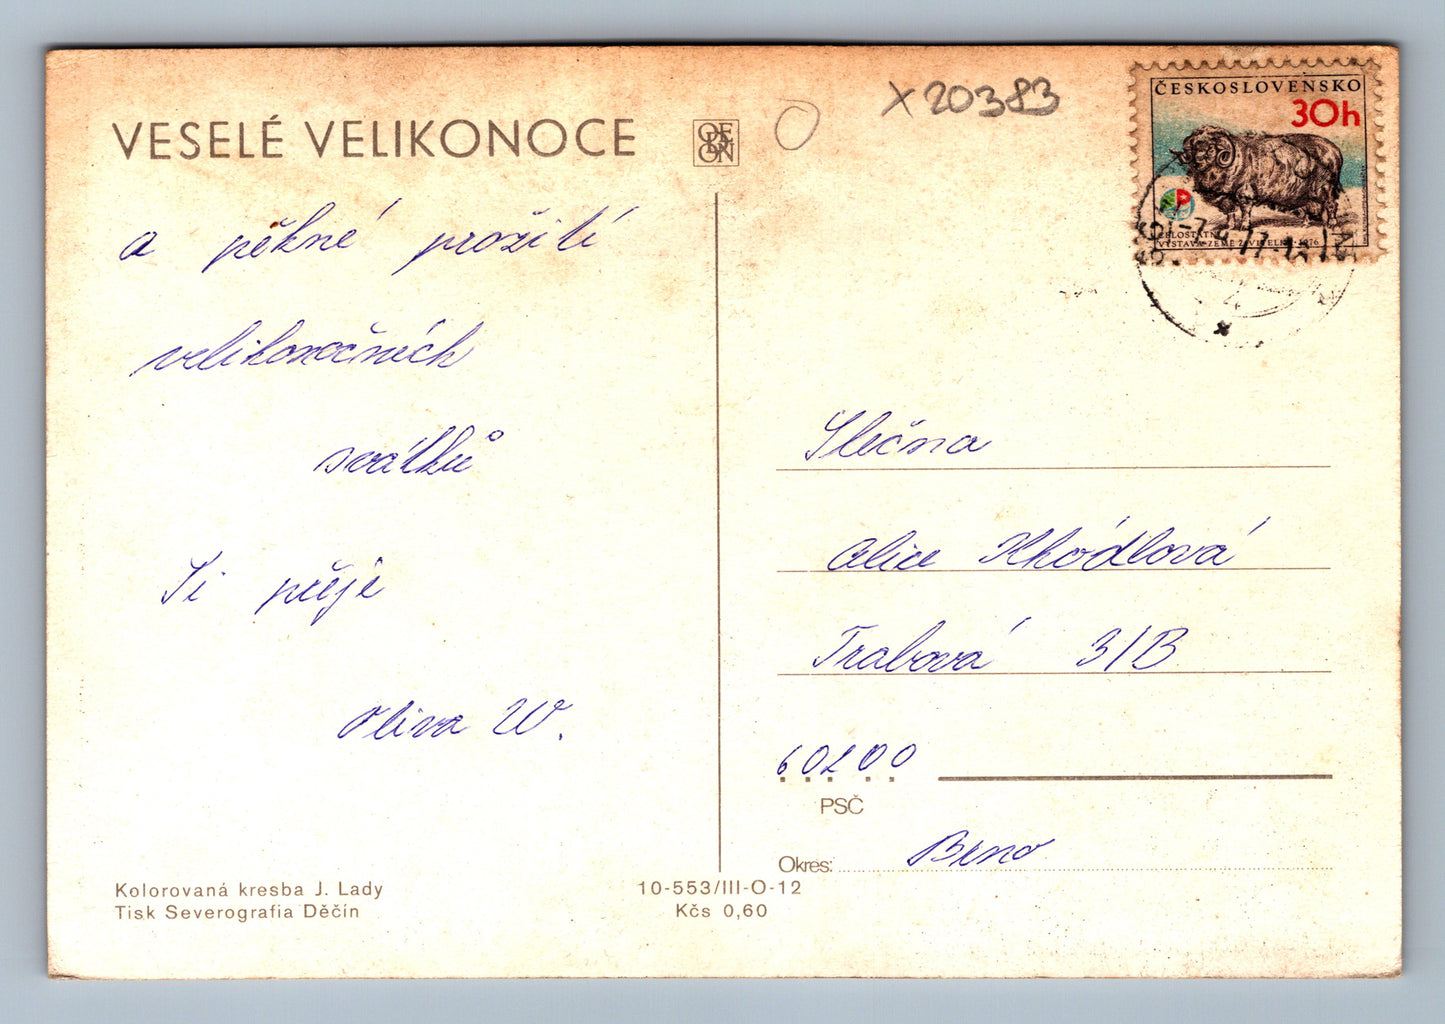 VESELÉ VELIKONOCE
ORBIS
X20383
ČESKOSLOVENSKO
30h
CELOSTÁTNÍ
VÝSTAVA ZEMĚ ŽIVITELKA · 1976
a pěkné prožití
velikonočních
svátků
Ti přeje
Oliva W.
Slečna
Alice Khódlová
Trabová 3/B
60200
PSČ
Okres: Brno
Kolorovaná kresba J. Lady
Tisk Severografia Děčín
10-553/III-O-12
Kčs 0,60